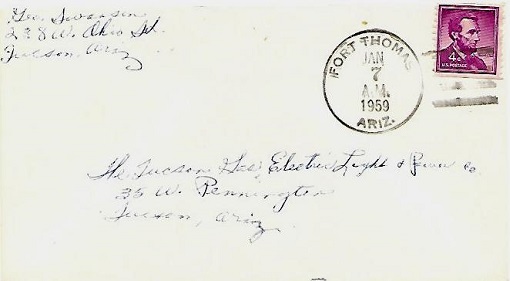 Geo. Swanson
238 W. Ohio St.
Tucson, Ariz
FORT THOMAS
JAN
7
A.M.
1959
ARIZ.
4¢
U.S. POSTAGE
The Tucson Gas, Electric Light & Power Co
35 W. Pennington
Tucson, Ariz.